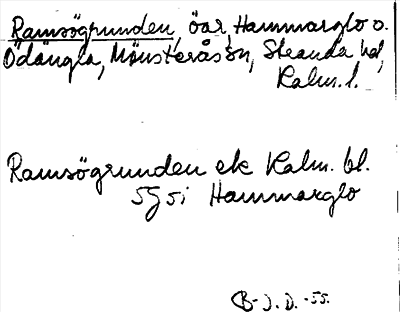 Ramsögrunden, öar, Hammarglo o.
Ödängla, Mönsterås sn, Stranda hd,
Kalm. l.
Ramsögrunden ek Kalm. bl.
5g5i Hammarglo
B- J. D. -55.